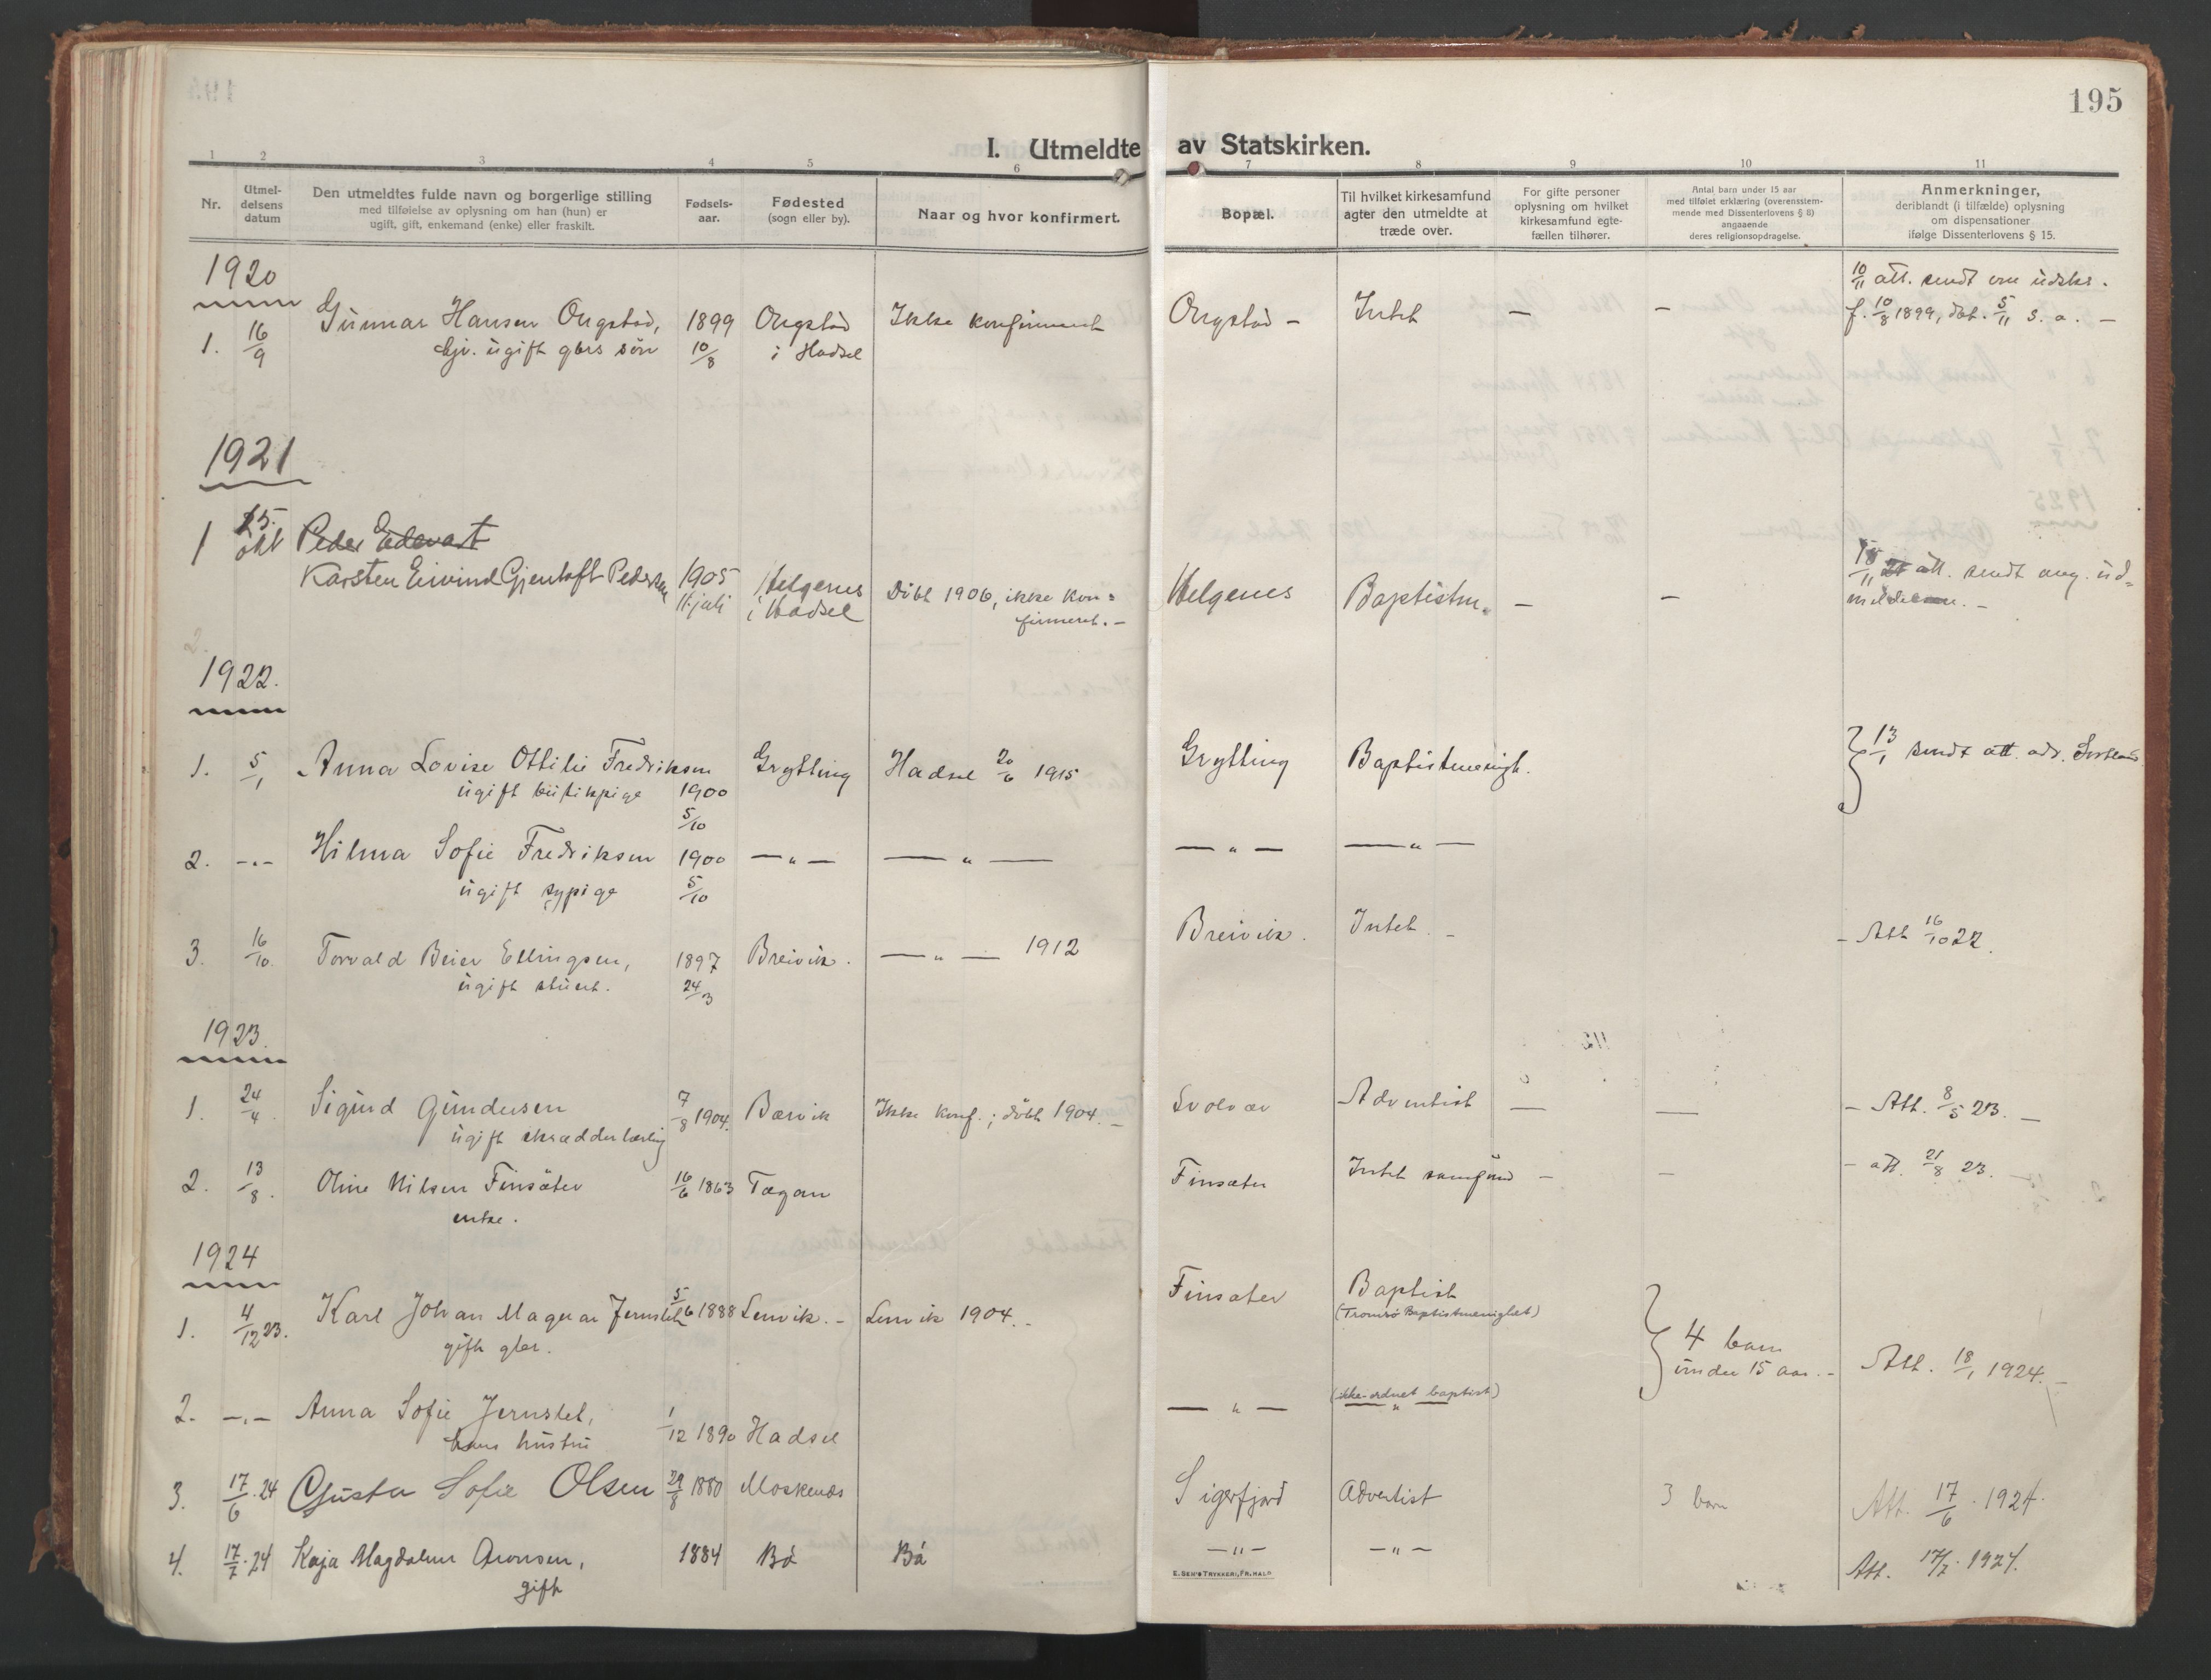 195
I. Utmeldte av Statskirken.
1 2 3 4 5 6 7 8 9 10 11
Nr.
Utmel-
delsens
datum
Den utmeldtes fulde navn og borgerlige stilling
med tilføielse av oplysning om han (hun) er
ugift, gift, enkemand (enke) eller fraskilt.
Fødsels-
aar.
Fødested
(sogn eller by).
Naar og hvor konfirmert.
Bopæl.
Til hvilket kirkesamfund
agter den utmeldte at
træde over.
For gifte personer
oplysning om hvilket
kirkesamfund egte-
fællen tilhører.
Antal barn under 15 aar
med tilføiet erklæring (overensstem-
mende med Dissenterlovens § 8)
angaaende
deres religionsopdragelse.
Anmerkninger,
deriblandt (i tilfælde) oplysning
om dispensationer
ifølge Dissenterlovens § 15.
1920
1. 16/9 Gunnar Hansen Ongstad, 1899 Ongstad Ikke konfirmert Ongstad – Intet – – 10/11 att. sendt om udskr.
ugift gbrs søn 10/8 i Hadsel f. 10/8 1899, døbt. 5/11 s. a. –
1921
1 25. okt Peder Edevart
Karsten Eivind Gjentoft Pedersen 1905 Helgenes Døbt 1906, ikke kon= Helgenes Baptistm. – – 18/11 att. sendt ang. ud=
11. juli i Hadsel firmeret. – meldelsen. –
2.
1922.
1. 5/1 Anna Lovise Ottilie Fredriksen Grytting Hadsel 20/6 1915 Grytting Baptistmenigh. 13/1 sendt att. adr. Sortland
ugift butikpige 1900
5/10
2. -„- Hilma Sofie Fredriksen 1900 — „ — — „ — — „ — — „ —
ugift sypige 5/10
3. 16/10. Torvald Beier Ellingsen, 1897 Breivik. — „ — 1912 Breivik. Intet. – – Att 16/10 22.
ugift stud. 24/3
1923.
1. 24/4. Sigurd Gundersen 7/8 1904. Børvik Ikke konf.; døbt 1904. – Svolvær Adventist — — – Att. 8/5 23. –
ugift skrædderlærling
2. 13/8. Oline Nilsen Finsæter 16/6 1863 Tøgan Finsæter Intet samfund – – – att. 21/8 23. –
enke.
1924
1. 4/12 23. Karl Johan Magnar Jernslet 5/6 1888 Lenvik. – Lenvik 1904. – Finsæter Baptist
(Tromsø Baptistmenighet)
gift gbr. 4 barn
under 15 aar. – Att. 18/1 1924. –
2. -„- Anna Sofie Jernslet, 1/12 1890 Hadsel — „ — (ikke-ordnet baptist)
— „ —
hans hustru
3. 17/6. 24 Gusta Sofie Olsen 29/8 1880 Moskenes Sigerfjord Adventist 3 barn Att. 17/6. 1924.
4. 17/7. 24 Kaja Magdalene Aronsen, 1884 Bø Bø –„– –„– Att. 17/7. 1924.
gift
E. SEM'S TRYKKERI, FR.HALD